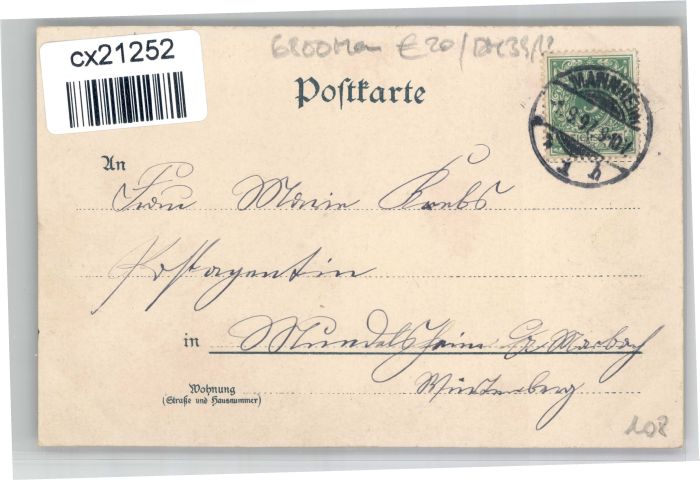 cx21252
6800 Man € 20/DM 39/12
Postkarte
MANNHEIM
1 h
An
Frau Marie Krebs
Postagentin
in Mundelsheim Marbach
Würtemberg
Wohnung
(Straße und Hausnummer)
108